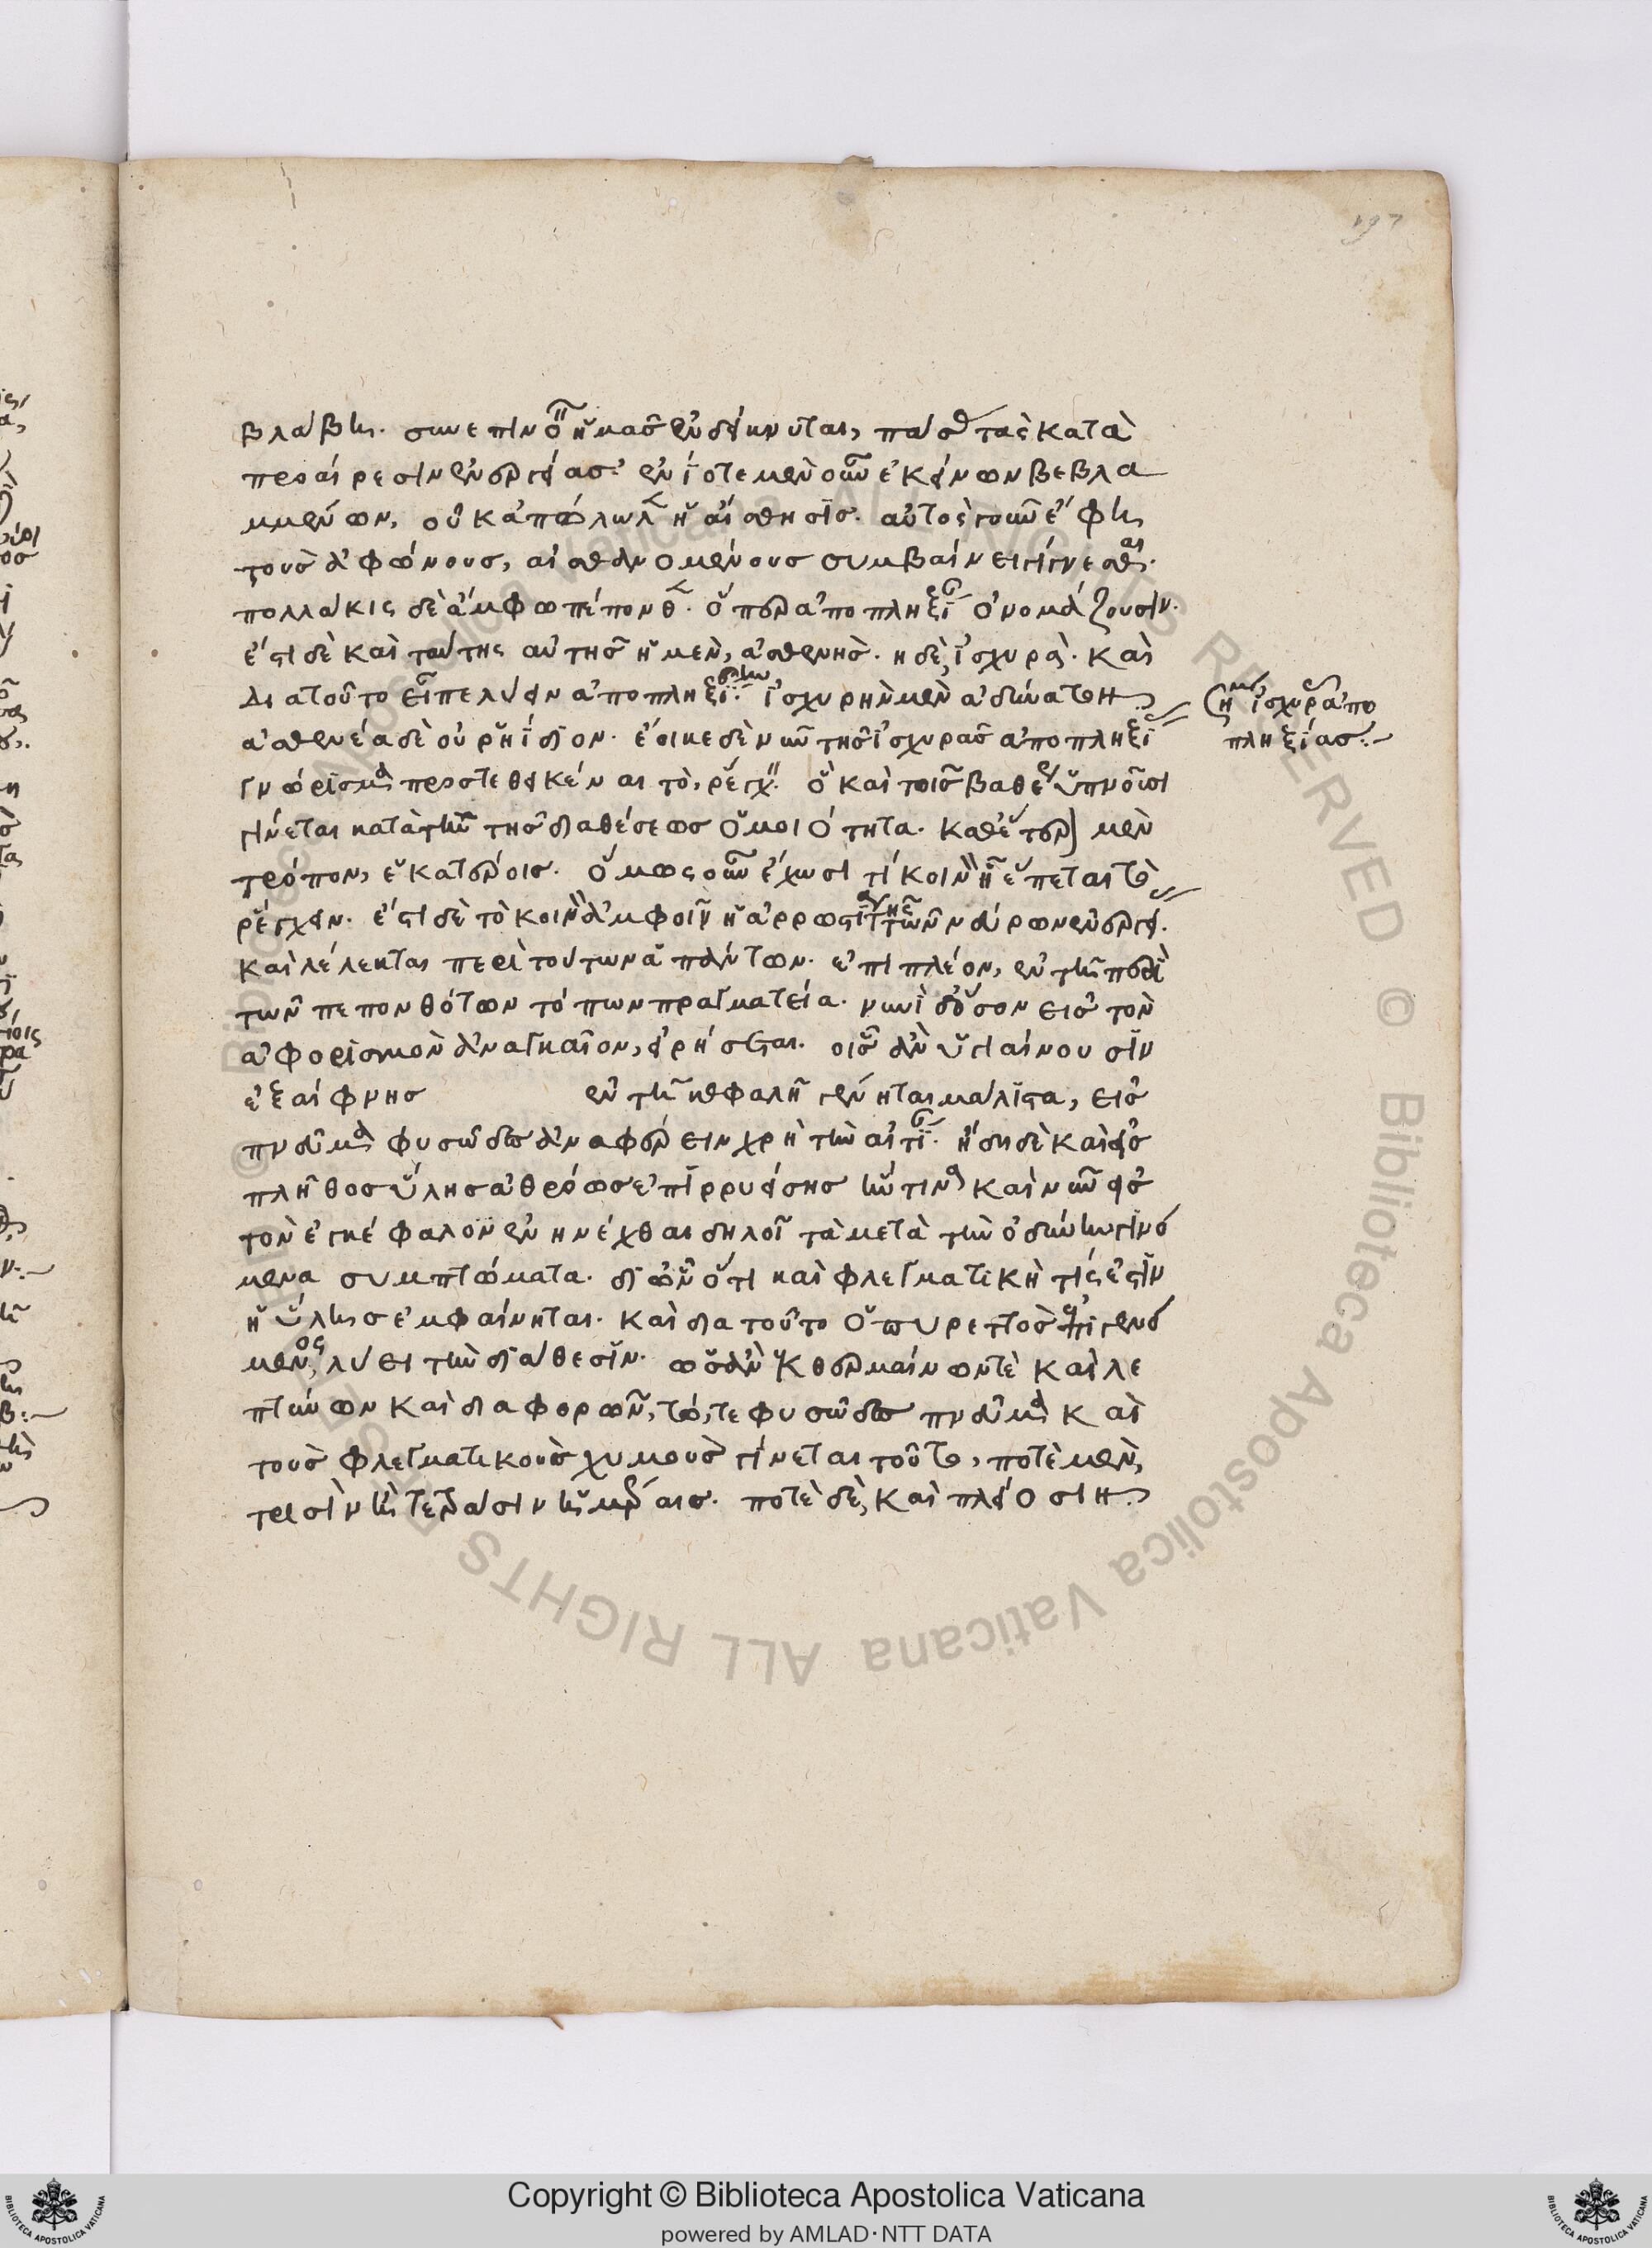 197
βλάβης. συνεπινο ἡμᾶς ἐνδείκνυται, πάσας τὰς κατὰ
προαίρεσιν ἐνεργείας. ἐνίοτε μὲν οὖν ἐκείνων βεβλα
μμένων, οὐκ ἀπόλωλεν ἡ αἴσθησις. αὐτὸς γοῦν ἔφη
τοὺς ἀφώνους, αἰσθανομένους συμβαίνει γίνεσθαι.
πολλάκις δὲ ἄμφω πέπονθεν. ὅπερ ἀποπληξίαν ὀνομάζουσιν.
ἔστι δὲ καὶ ταύτης αὐτῆς ἡ μὲν, ἀσθενὴς. ἡ δὲ, ἰσχυρὰ. καὶ
διατοῦτο εἶπε λύειν ἀποπληξίην ἰσχυρὴν μὲν ἀδύνατον
ἀσθενέα δὲ οὐ ῥηΐδιον. ἔοικε δὲ νῦν τῆς ἰσχυρᾶς ἀποπληξίας
γνώρισμα προστεθεικέναι τὸ, ῥέγχειν. ὃ καὶ τοῖς βαθέως ὑπνοῦσι
γίνεται κατὰ τὴν τῆς διαθέσεως ὁμοιότητα. καθ' ἕτερον μὲν
τρόπον, ἑκατέροις. ὅμως οὖν ἔχωσί τι κοινὸν ᾧ ἕπεται τὸ
ῥέγχειν. ἔστι δὲ τὸ κοινὸν ἀμφοῖν ἡ ἀρρωστία τῶν νεύρων ἐνεργεί.
καὶ λέλεκται περὶ τούτων ἁπάντων. ἐπιπλέον, ἐν τῇ περὶ
τῶν πεπονθότων τόπων πραγματεία. νυνὶ δ' ὅσον εἰς τὸν
ἀφορισμὸν ἀναγκαῖον, εἰρήσεται. οἷς ἂν ὑγιαίνουσιν
ἐξαίφνης ἐν τῇ κεφαλῇ γένηται μάλιστα, εἰς
πνεῦμα φυσῶδες ἀναφέρειν χρὴ τὴν αἰτίαν. ἤδη δὲ καὶ εἰς
πλῆθος ὕλης ἀθρόως ἐπιρρυείσης ἥντινα καὶ νῦν εἰς
τὸν ἐγκέφαλον ἐνηνέχθαι δηλοῖ τὰ μετὰ τὴν ὀδύνην γινό
μενα συμπτώματα. δι' ὧν ὅτι καὶ φλεγματικὴ τίς ἐστιν
ἡ ὕλη ἐμφαίνηται. καὶ διατοῦτο ὁ πυρετὸς ἐπιγενό
μενος, λύει τὴν διάθεσιν. ὡς ἂν ἐκθερμαίνων τὲ καὶ λε
πτύνων καὶ διαφορῶν, τό, τε φυσῶδες πνεῦμα καὶ
τοὺς φλεγματικοὺς χυμοὺς γίνεται τοῦτο, ποτὲ μὲν,
τρισὶν ἢ τέτρασιν ἡμέραις. ποτὲ δὲ, καὶ πλείοσιν
ἡ μὲν ἰσχυρᾶς ἀπο
πληξίας:
Copyright © Biblioteca Apostolica Vaticana
powered by AMLAD·NTT DATA